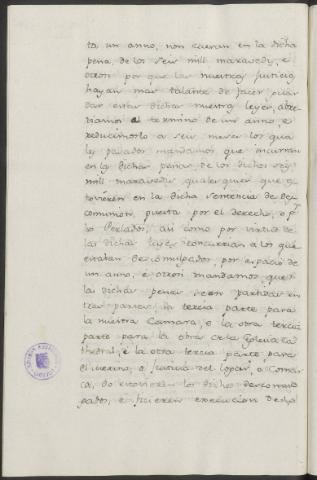 ta un anno, non cueran en la dicha
pena, de los seis mill maravedis, e
otrosi por que las nuestras justicias
hayan mas talante de facer guar
dar estas dichas nuestras leyes, abre
viamos el termino de un anno, e
reducimoslo a seis meses los qua
les pasados mandamos que incurran
en la dichas penas de los dichos seys
mill maravedis qualesquier que es
tovieren en la dicha sentencia de des
comunion, puesta por el derecho, o p
los Perlados, asi como por virtud de
las dichas leyes incurrian a los que
estaban descomulgados, por espacio de
un anno, e otrosi mandamos que
las dichas penas sean partidas en
tres partes, la tercia parte para
la nuestra Camara, e la otra tercia
parte para la obra de la Iglesia Ca
thedral, e la otra tercia parte para
el merino, o Justicia del logar, o Comar
ca, do estovieren los dichos descomul
gados, e ficieren execucion